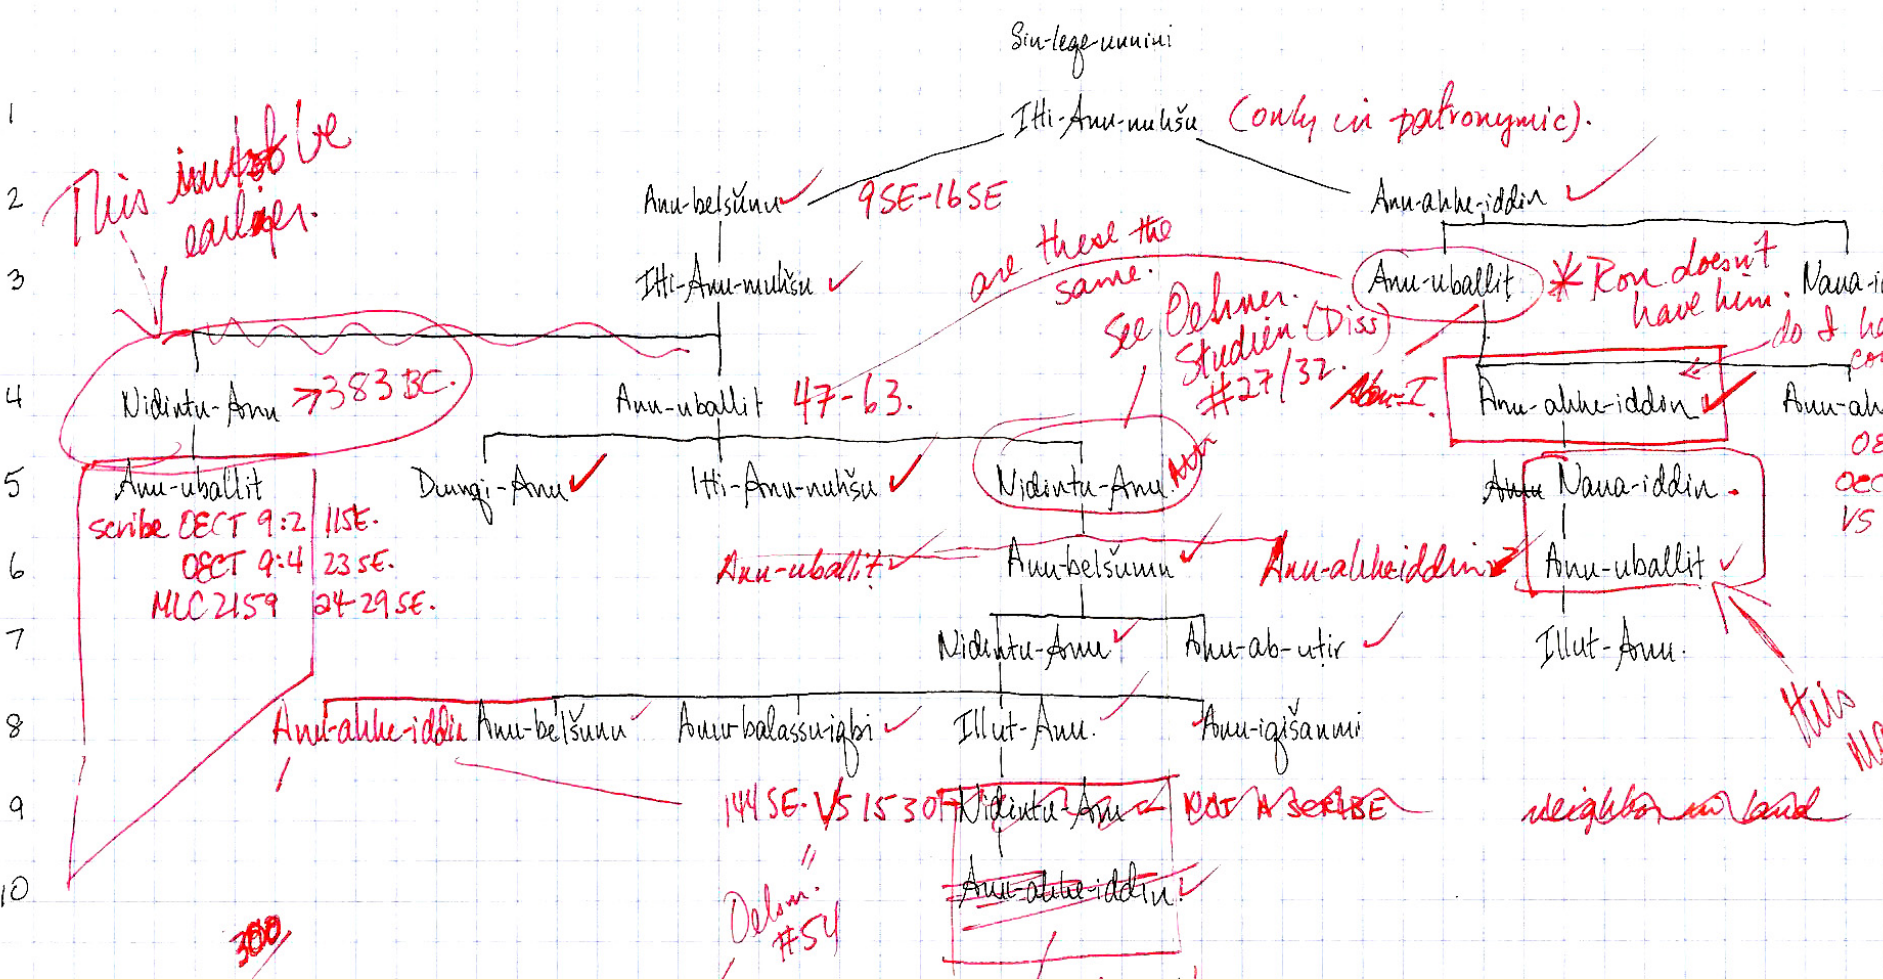 Sin-leqe-unnini
1 Itti-Anu-nuhšu (only in patronymic).
This must be
earlier.
2 Anu-belšunu 9SE-16SE Anu-ahhe-iddin
are these the
same.
3 Itti-Anu-nuhšu Anu-uballit * Ron doesn't
have him.
Nana-i
See Oelsner.
Studien (Diss)
#27/32.
do I ha
co
4 Nidintu-Anu → 383 BC. Anu-uballit 47-63. Anu-ahhe-iddin Anu-ah
OE
5 Anu-uballit Dumqi-Anu Itti-Anu-nuhšu Nidintu-Anu Anu Nana-iddin. OEC
scribe OECT 9:2 11SE. VS
6 OECT 9:4 23SE. Anu-uballit Anu-belšunu Anu-ahheiddin Anu-uballit
MLC 2159 24-29SE.
7 Nidintu-Anu Anu-ab-utir Illut-Anu.
This
8 Anu-ahhe-iddin Anu-belšunu Anu-balassu-iqbi Illut-Anu. Anu-iqišanni
9 144SE. VS 15 30 Nidintu-Anu NOT A SCRIBE neighbor in land
"
10 Anu-ahhe-iddin.
#54
300